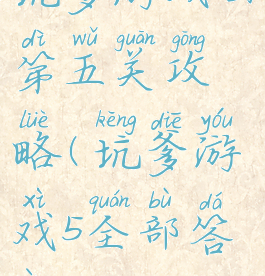 dì wǔ guān gōng
第五关攻
lüè kēng diē yóu
略(坑爹游
xì quán bù dá
戏5全部答